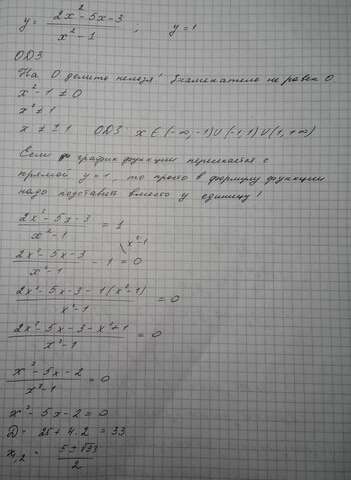 y = (2x² - 5x - 3)/(x² - 1) ; y = 1
ОДЗ
На 0 делить нельзя! Знаменатель не равен 0
x² - 1 ≠ 0
x² ≠ 1
x ≠ ± 1 ОДЗ x ∈ (-∞, -1) ∪ (-1, 1) ∪ (1, +∞)
Если график функции пересекается с
прямой y = 1, то просто в формулу функции
надо подставить вместо y единицу!
(2x² - 5x - 3)/(x² - 1) = 1
(2x² - 5x - 3)/(x² - 1) - 1 \x²-1 = 0
(2x² - 5x - 3 - 1(x² - 1))/(x² - 1) = 0
(2x² - 5x - 3 - x² + 1)/(x² - 1) = 0
(x² - 5x - 2)/(x² - 1) = 0
x² - 5x - 2 = 0
D = 25 + 4·2 = 33
x₁,₂ = (5 ± √33)/2